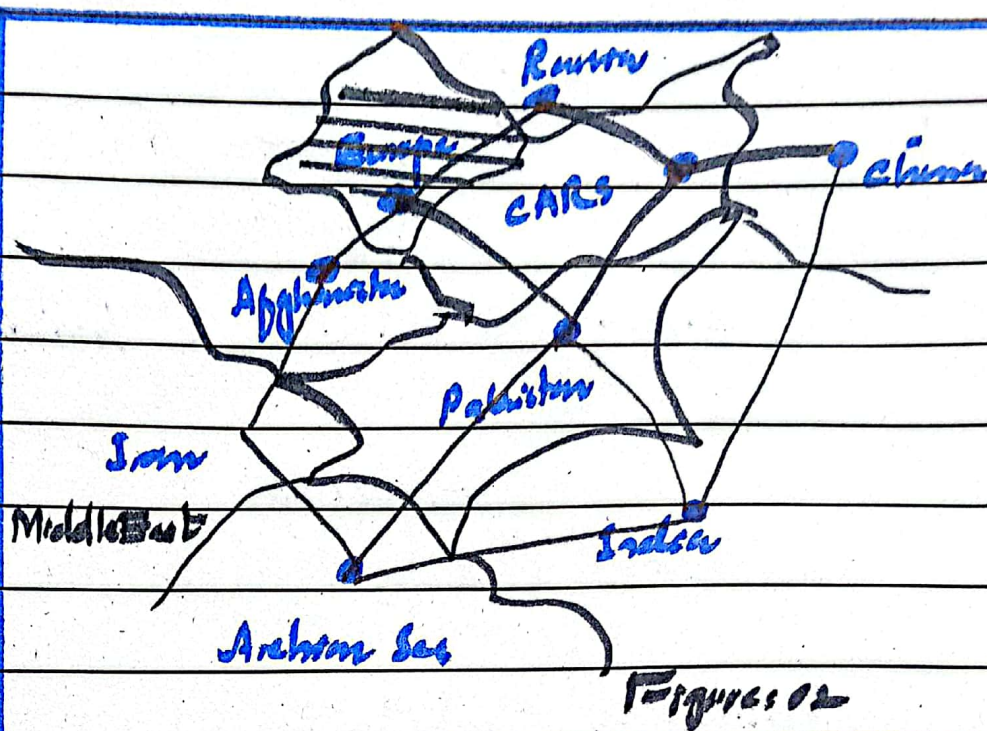 Russia
Europe
China
CARS
Afghanistan
Pakistan
Iran
Middle East
India
Arabian Sea
Figure: 02